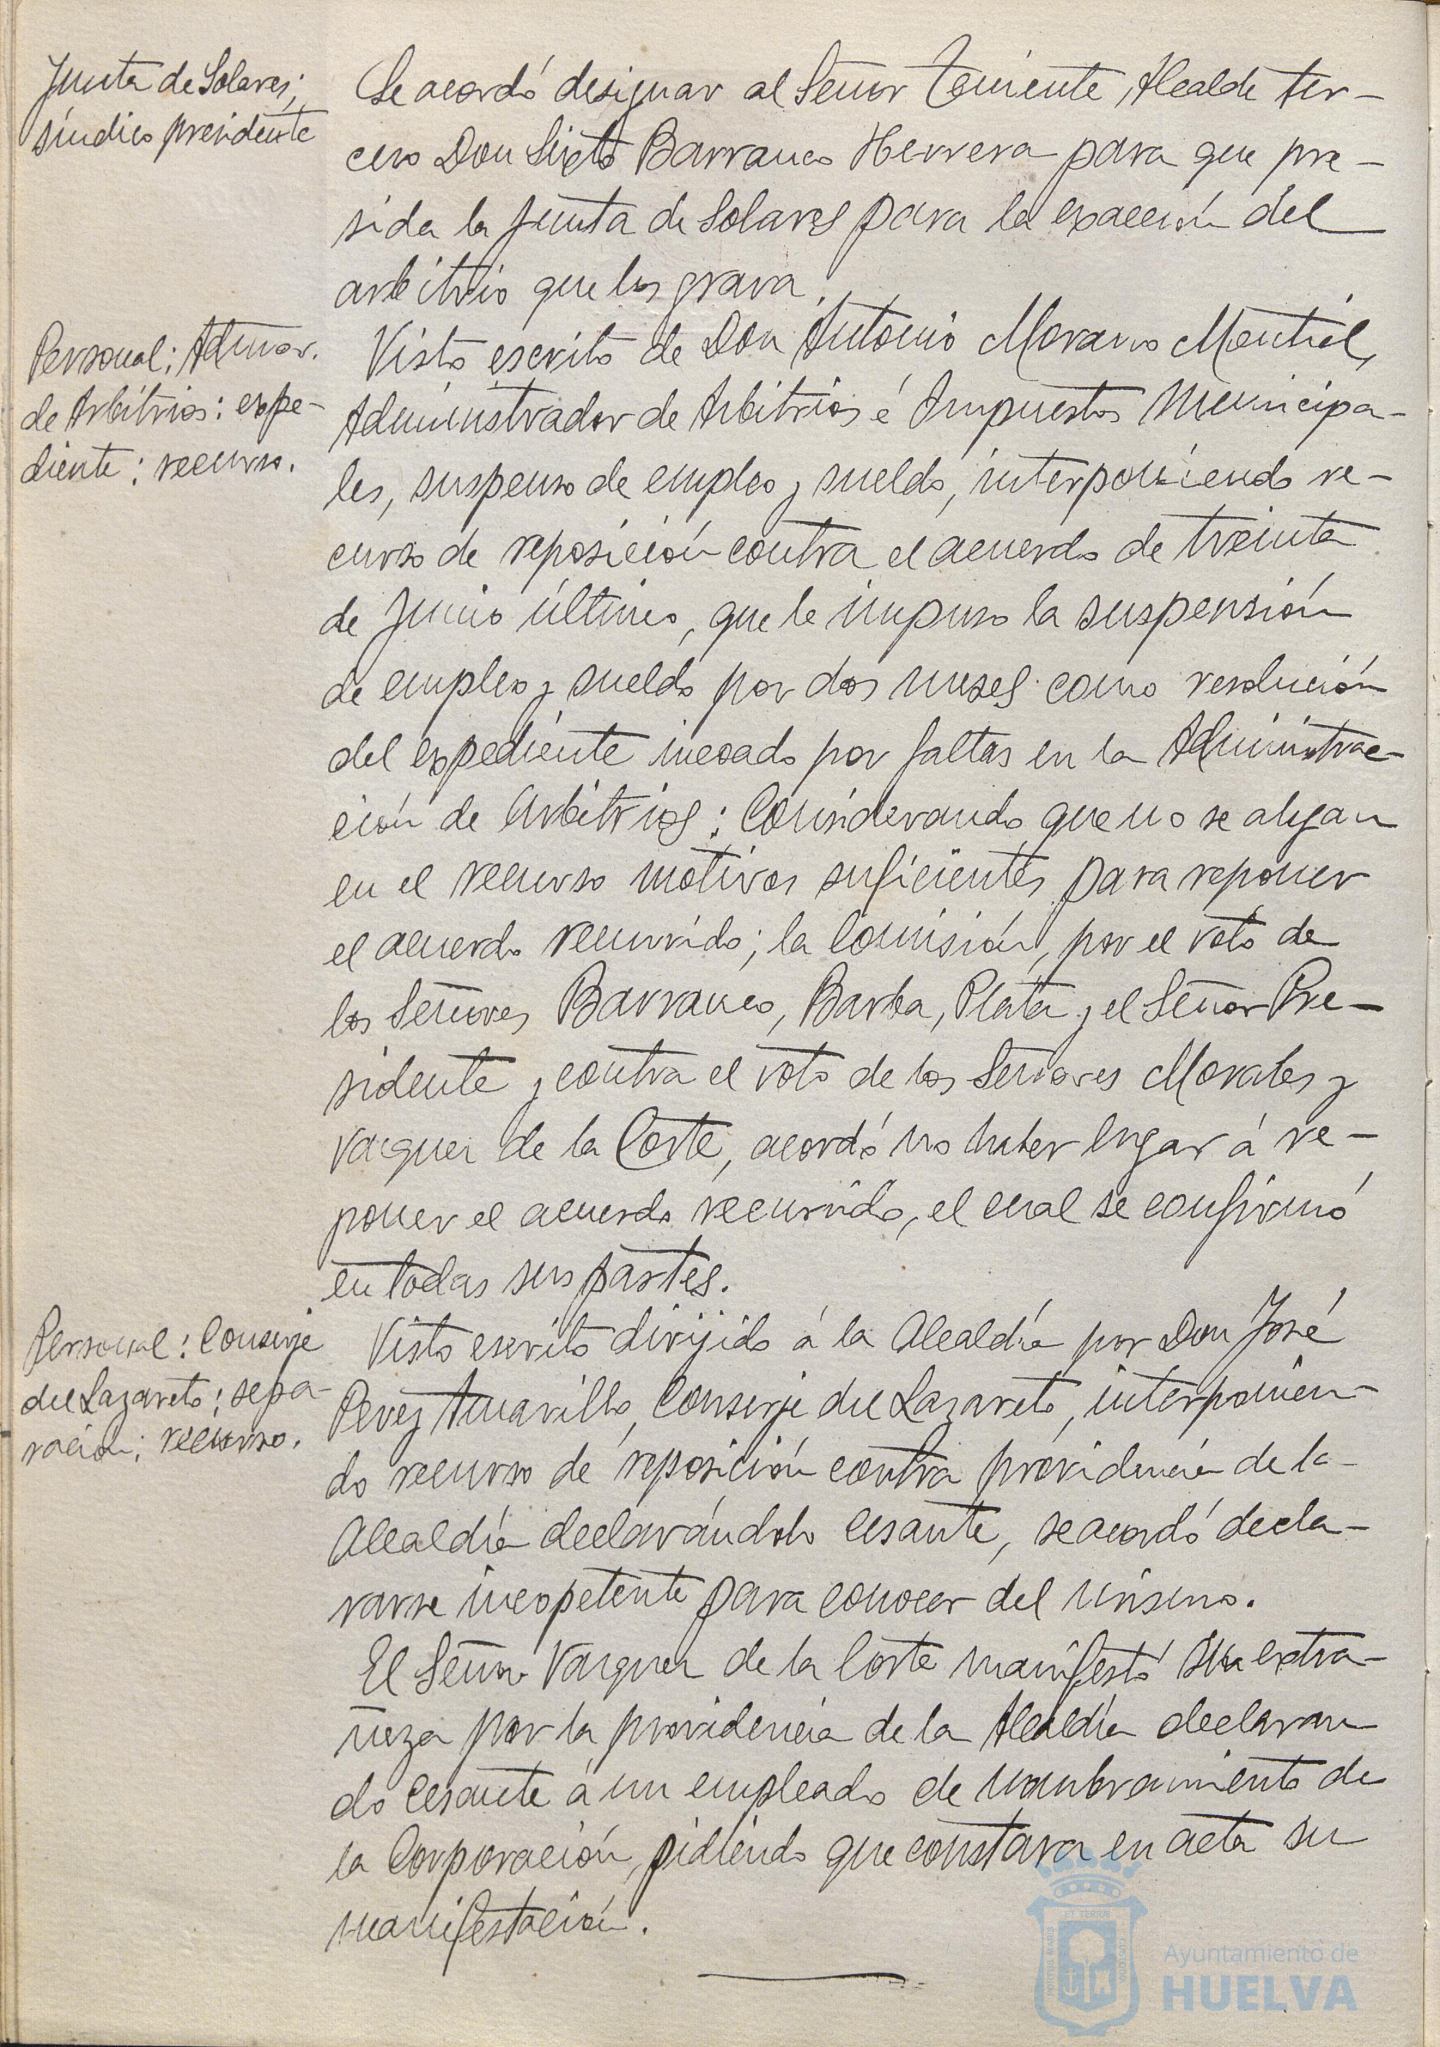 Junta de Solares;
síndico presidente
Se acordó designar al Señor Teniente Alcalde ter-
cero Don Sixto Barranco Herrera para que pre-
sida la Junta de Solares para la exacción del
arbitrio que los grava.
Personal: Admor.
de Arbitrios: expe-
diente: recurso.
Visto escrito de Don Antonio Morano Montiel,
Administrador de Arbitrios é Impuestos Municipa-
les, suspenso de empleo y sueldo, interponiendo re-
curso de reposición contra el acuerdo de treinta
de Junio último, que le impuso la suspensión
de empleo y sueldo por dos meses como resolución
del expediente incoado por faltas en la Administrac-
ción de Arbitrios: Considerando que no se alegan
en el recurso motivos suficientes para reponer
el acuerdo recurrido; la Comisión, por el voto de
los Señores Barranco, Barba, Plata y el Señor Pre-
sidente y contra el voto de los Señores Morales y
Vazquez de la Corte, acordó no haber lugar á re-
poner el acuerdo recurrido, el cual se confirmó
en todas sus partes.
Personal: Conserje
del Lazareto: sepa-
ración: recurso.
Visto escrito dirijido á la Alcaldía por Don José
Perez Amarillo, Conserje del Lazareto, interponien-
do recurso de reposición contra providencia de la
Alcaldía declarándolo cesante, se acordó decla-
rarse incopetente para conocer del mismo.
El Señor Vazquez de la Corte manifestó su extra-
ñeza por la providencia de la Alcaldía declaran
do cesante á un empleado de nombramiento de
la Corporación, pidiendo que constara en acta su
manifestación.
Ayuntamiento de
HUELVA